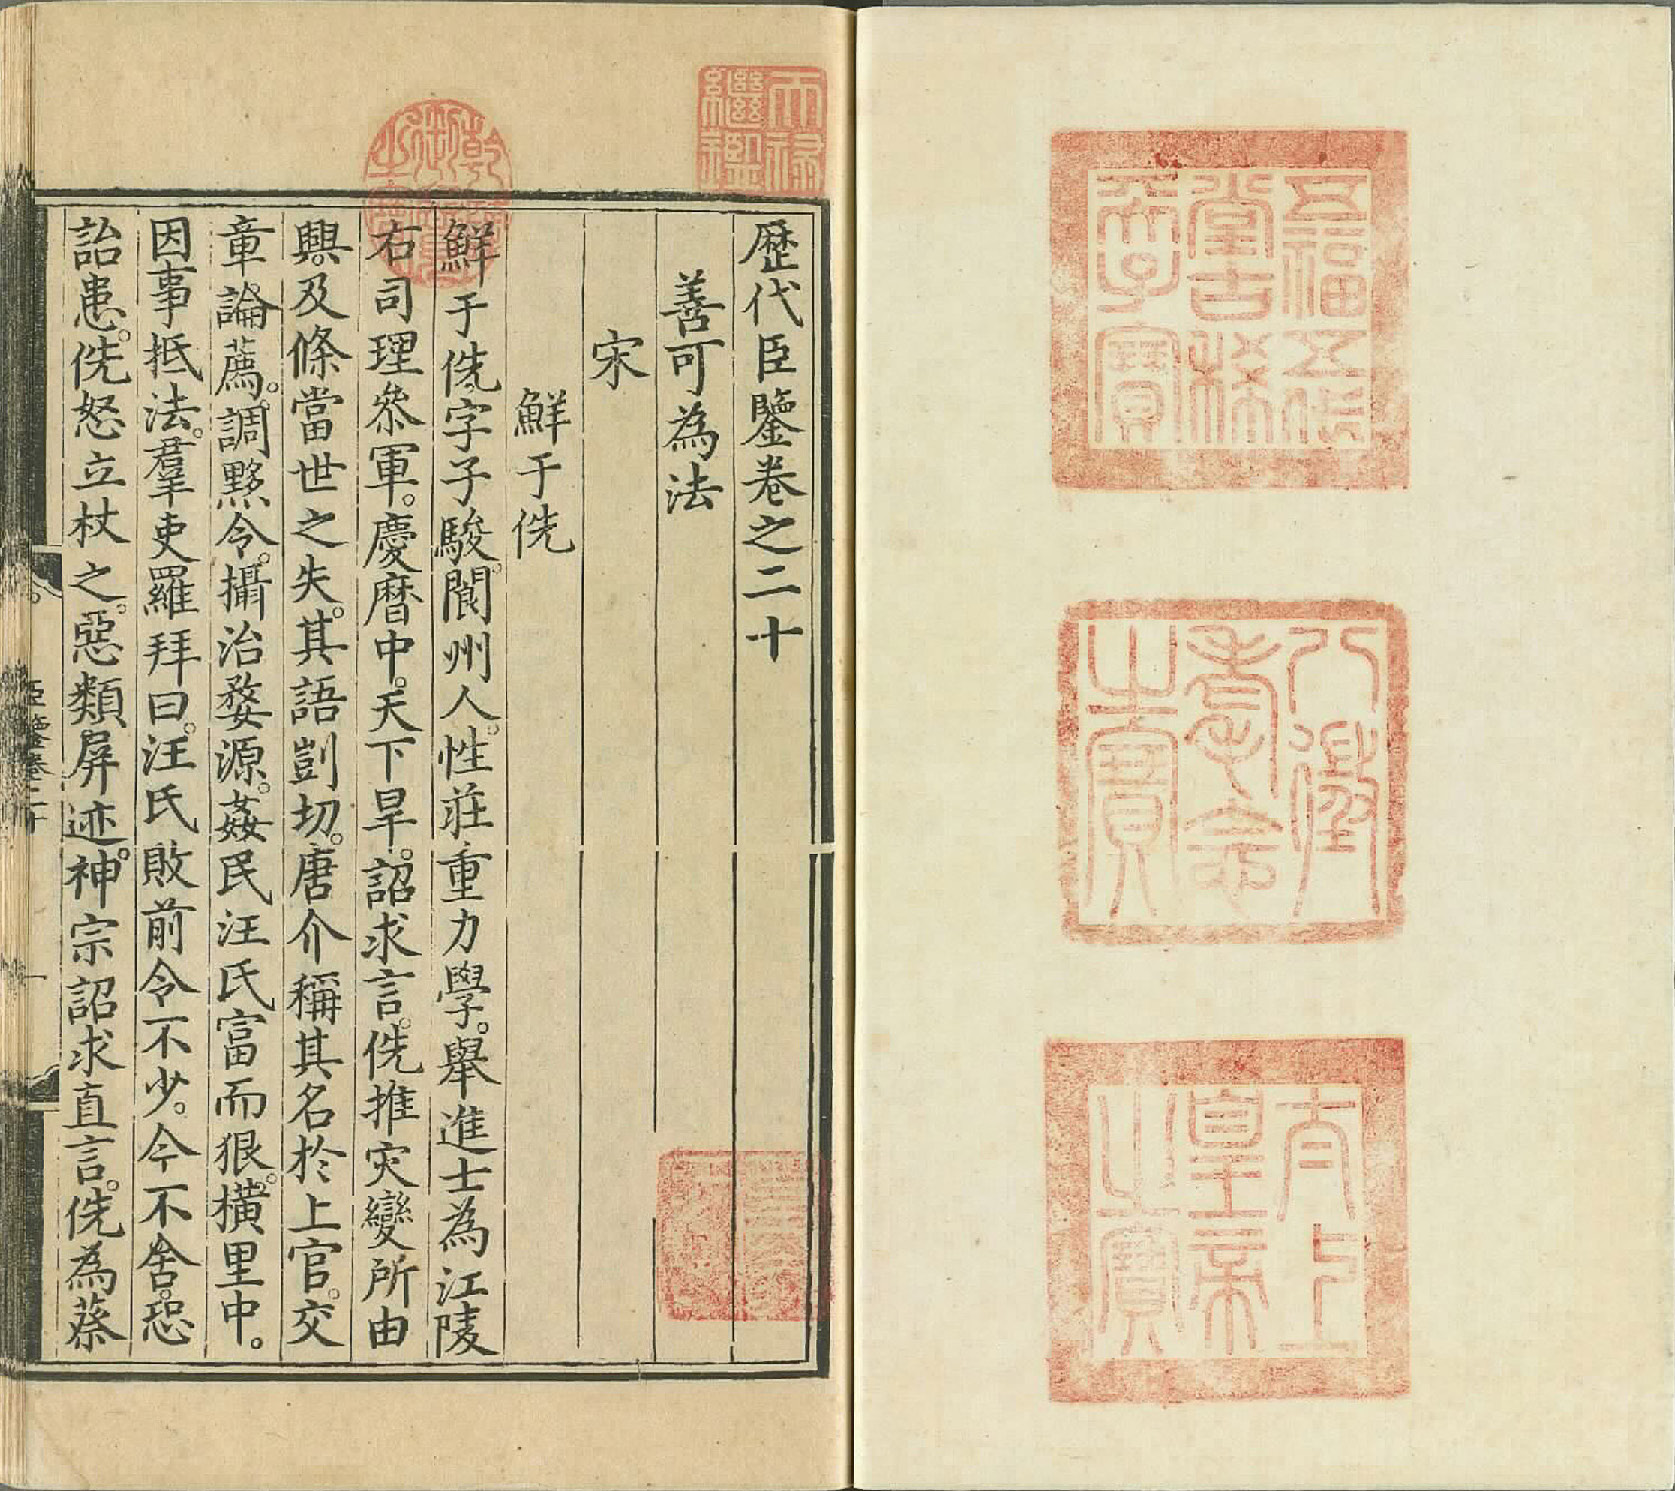 五福五代
堂古稀
天子寶
八徵
耄念
之寶
太上
皇帝
之寶
天祿
繼鑑
乾隆
御覽
之寶
歷代臣鑒卷之二十
善可為法
宋
鮮于侁
鮮于侁字子駿。閬州人。性莊重力學。舉進士為江陵
右司理參軍。慶曆中。天下旱。詔求言。侁推灾變所由
興。及條當世之失。其語剴切。唐介稱其名於上官。交
章論薦。調黟令。攝治婺源。姦民汪氏富而狠。橫里中。
因事抵法。羣吏羅拜曰。汪氏敗前令不少。今不舍。恐
詒患。侁怒立杖之。惡類屏迹。神宗詔求直言。侁為蔡
臣鑒卷二十
一